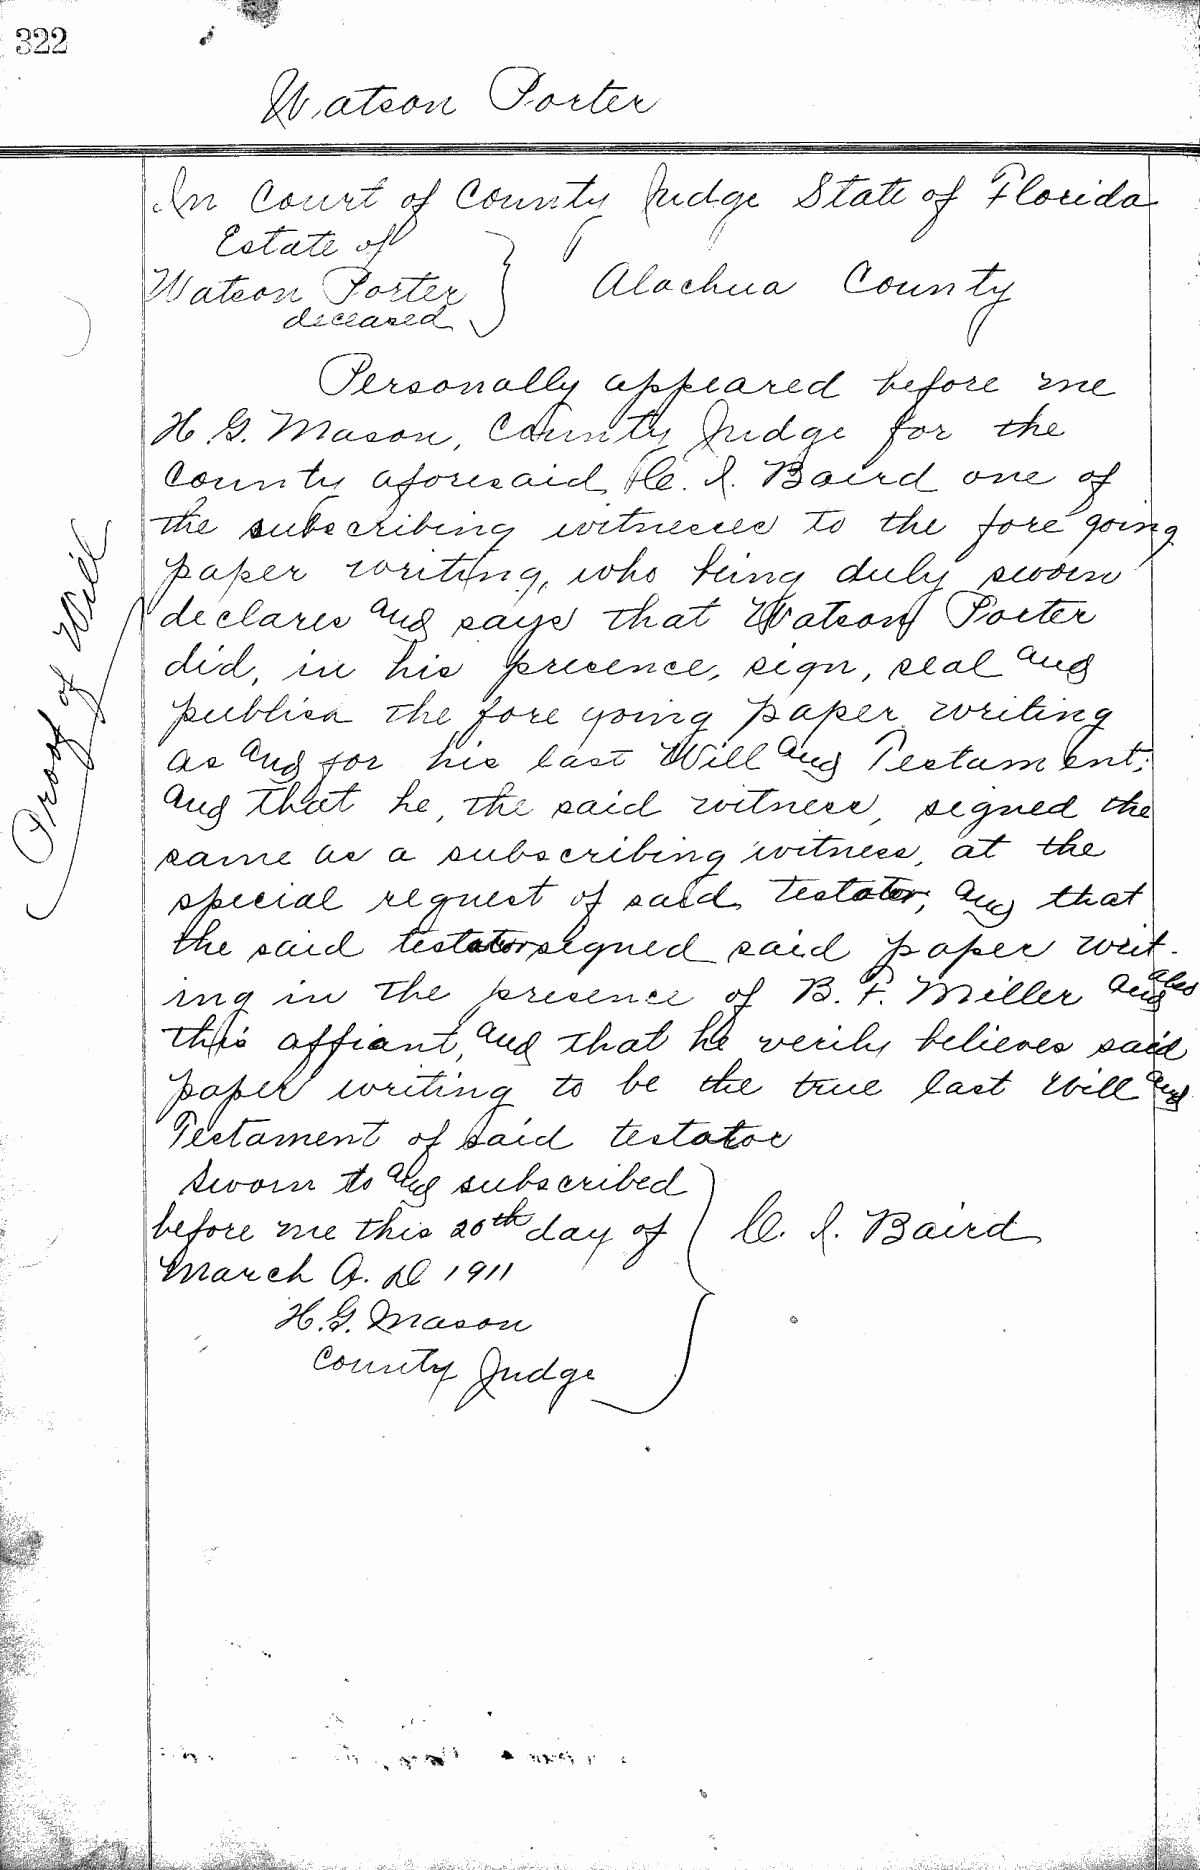 322
Watson Porter
In Court of County Judge State of Florida
Estate of
Watson Porter
deceased
Alachua County
Proof of Will
Personally appeared before me
H. G. Mason, County Judge for the
County aforesaid, C. I. Baird one of
the subscribing witnesses to the fore going
paper writing, who being duly sworn
declares and says that Watson Porter
did, in his presence, sign, seal and
publish the fore going paper writing
as and for his last Will and Testament;
and that he, the said witness, signed the
same as a subscribing witness, at the
special request of said testator, and that
the said testator signed said paper writ-
ing in the presence of B. F. Miller and also
this affiant, and that he verily believes said
paper writing to be the true last Will and
Testament of said testator
Sworn to and subscribed
before me this 20th day of
March A. D 1911
H. G. Mason
County Judge
C. I. Baird